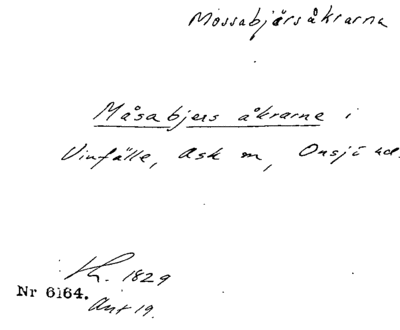 Mossabjärsåkrarna
Måsabjers åkrarne i
Vinfälle, Ask sn, Onsjö hd.
Lh. 1829
Nr 6164.
Akt 19.